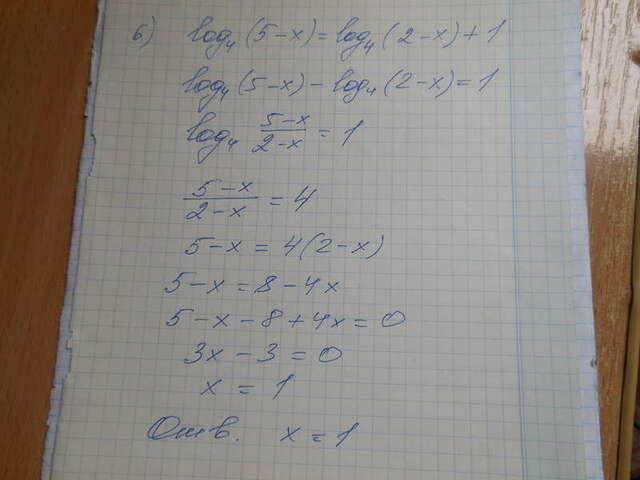 б) log₄(5-x) = log₄(2-x)+1
log₄(5-x) - log₄(2-x) = 1
log₄ (5-x)/(2-x) = 1
(5-x)/(2-x) = 4
5-x = 4(2-x)
5-x = 8-4x
5-x-8+4x = 0
3x-3 = 0
x = 1
Отв. x = 1